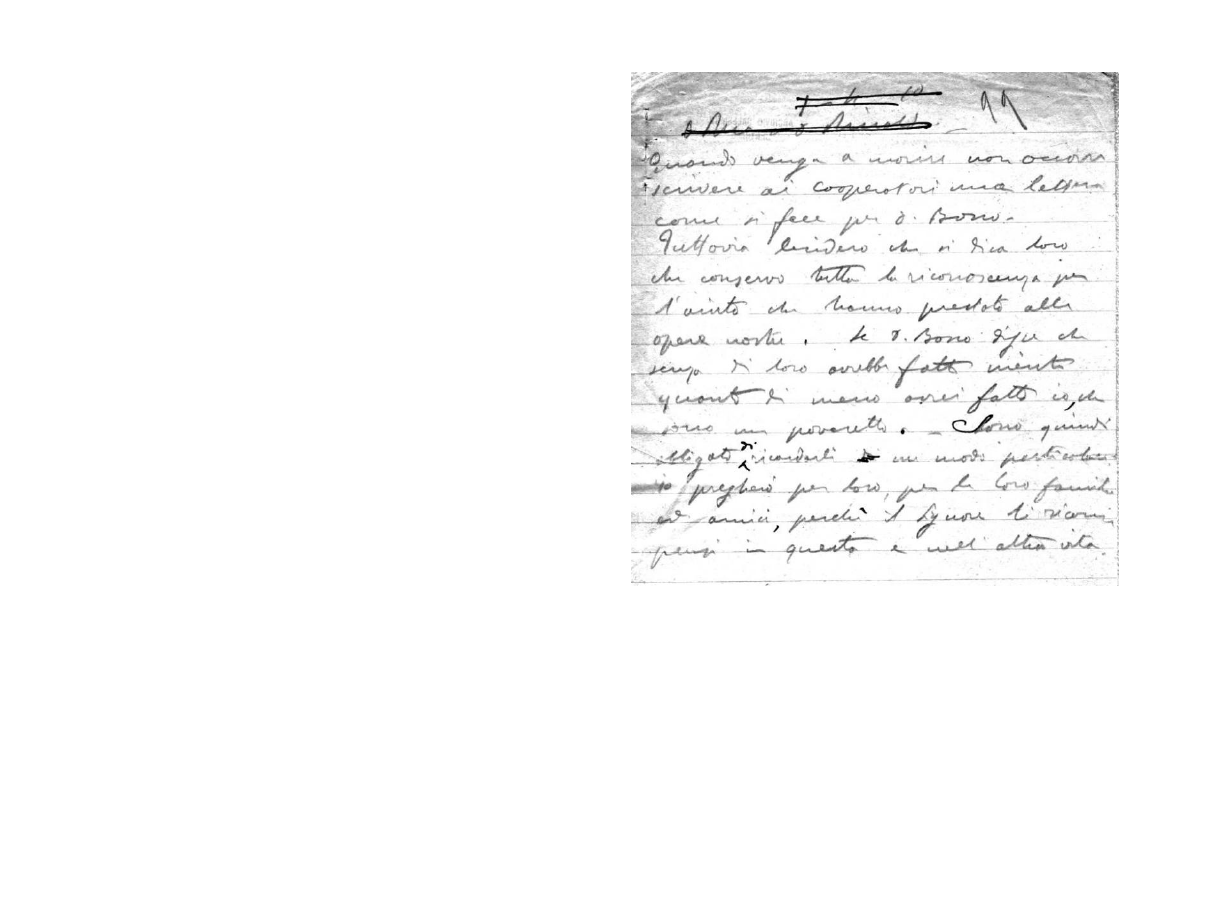 99
Quando venga a morire non occorre
scrivere ai cooperatori una lettera
come si fece per d. Bosco.
Tuttavia desidero che si dica loro
che conservo tutta la riconoscenza per
l'aiuto che hanno prestato alle
opere nostre. Se d. Bosco disse che
senza di loro avrebbe fatto niente
quanto di meno avrei fatto io, che
sono un poveretto. – Sono quindi
obligato di ricordarli in modo particolare
io pregherò per loro, per le loro famiglie
ed amici, perchè il Signore li ricom
pensi in questa e nell'altra vita.